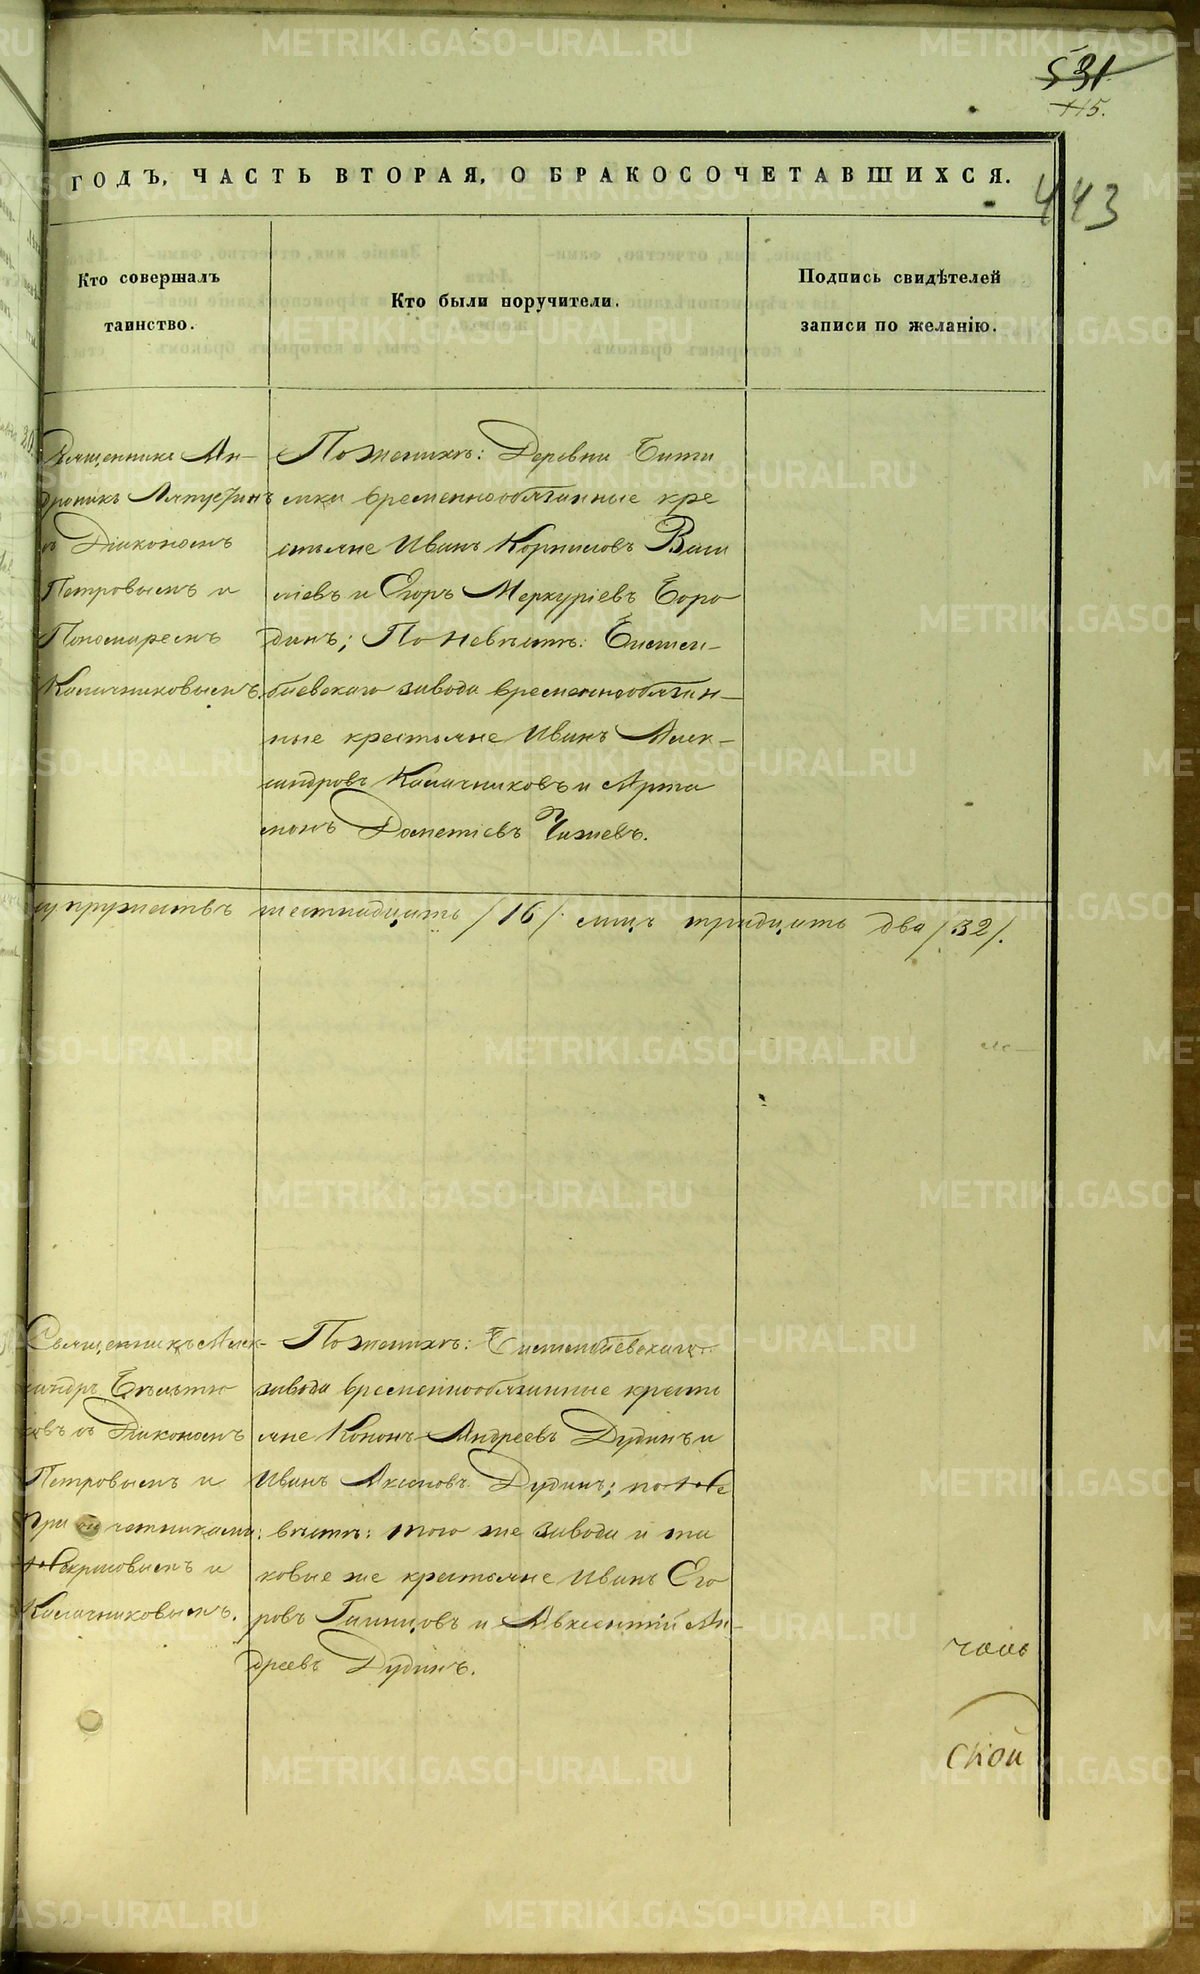 METRIKI.GASO-URAL.RU
531
115.
443
ГОДЪ, ЧАСТЬ ВТОРАЯ, О БРАКОСОЧЕТАВШИХСЯ.
Кто совершалъ
таинство.
Кто были поручители.
Подпись свидѣтелей
записи по желанію.
Священникъ Ан-
дроникъ Ляпустинъ
съ Діакономъ
Петровымъ и
Пономаремъ
Калачниковымъ.
По женихѣ: Деревни Бити
мки временнообязанные кре
стьяне Иванъ Корниловъ Васи
ліевъ и Егоръ Меркуріевъ Боро
динъ; По невѣстѣ: Бисем-
баевскаго завода временнообязан-
ные крестьяне Иванъ Алек-
сандровъ Калачниковъ и Арта
монъ Дометіевъ Чижевъ.
супружествъ шестнадцать /16/ лицъ тридцать два /32/.
Священникъ Алек-
сандръ Бѣльтю
ковъ съ Діакономъ
Петровымъ и
причетниками:
и
Калачниковымъ.
По женихѣ:
завода временнообязанные кресть
яне Кононъ Андреевъ Дудинъ и
Иванъ Акимовъ Дудинъ; по не
вѣстѣ: того же завода и та
ковые же крестьяне Иванъ Его
ровъ Галицовъ и Авксентій Ан-
дреевъ Дудинъ.
ской